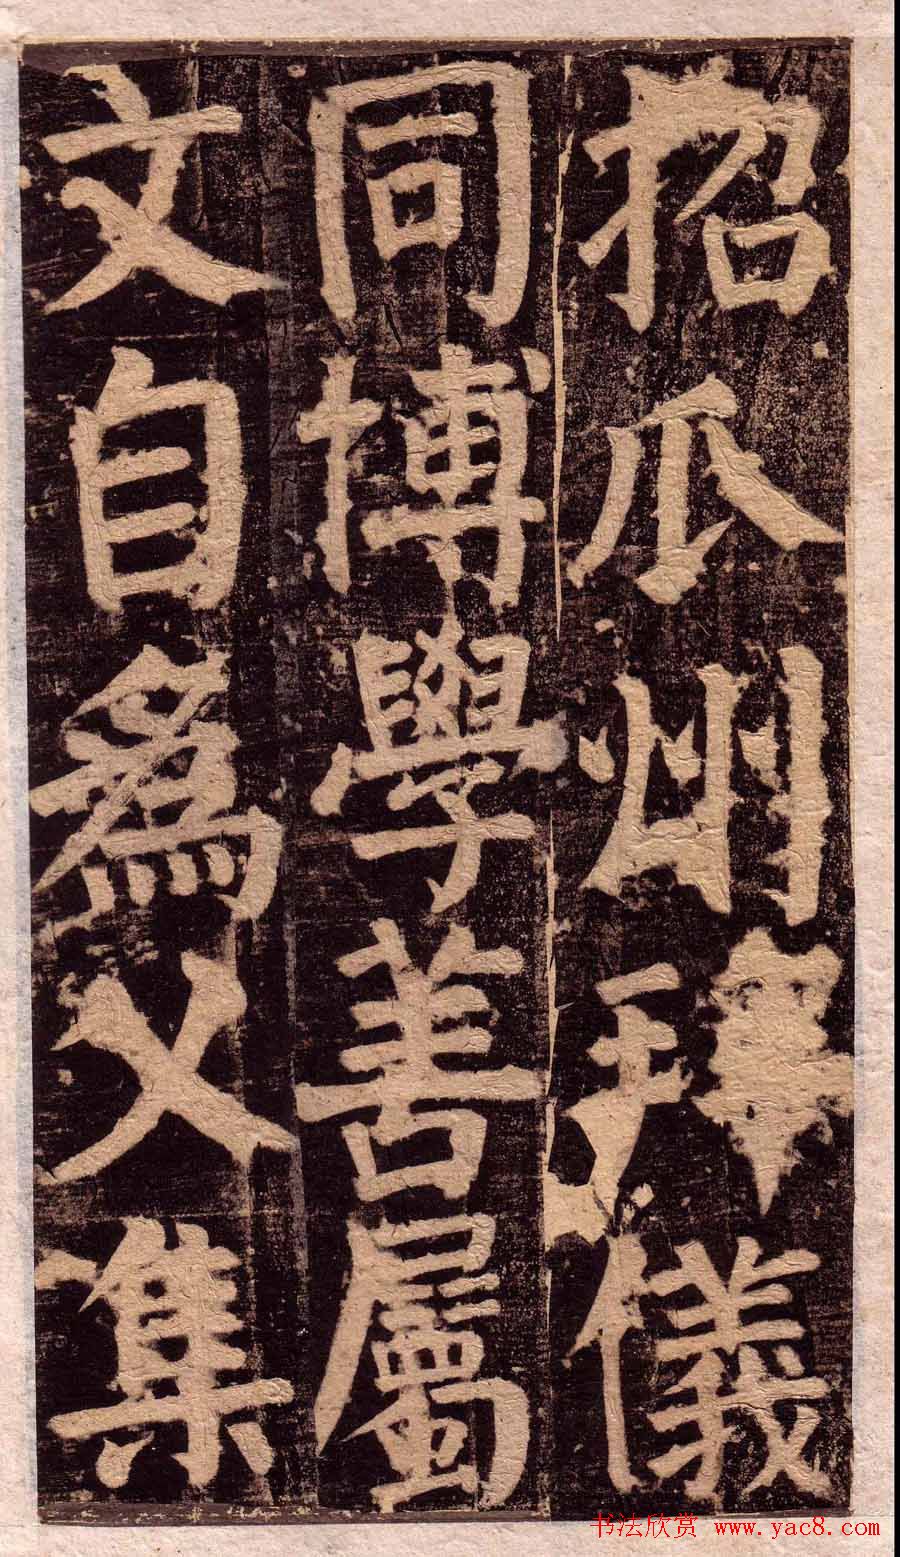 招瓜州拜儀
同博學善屬
文自為父集
书法欣赏 www.yac8.com